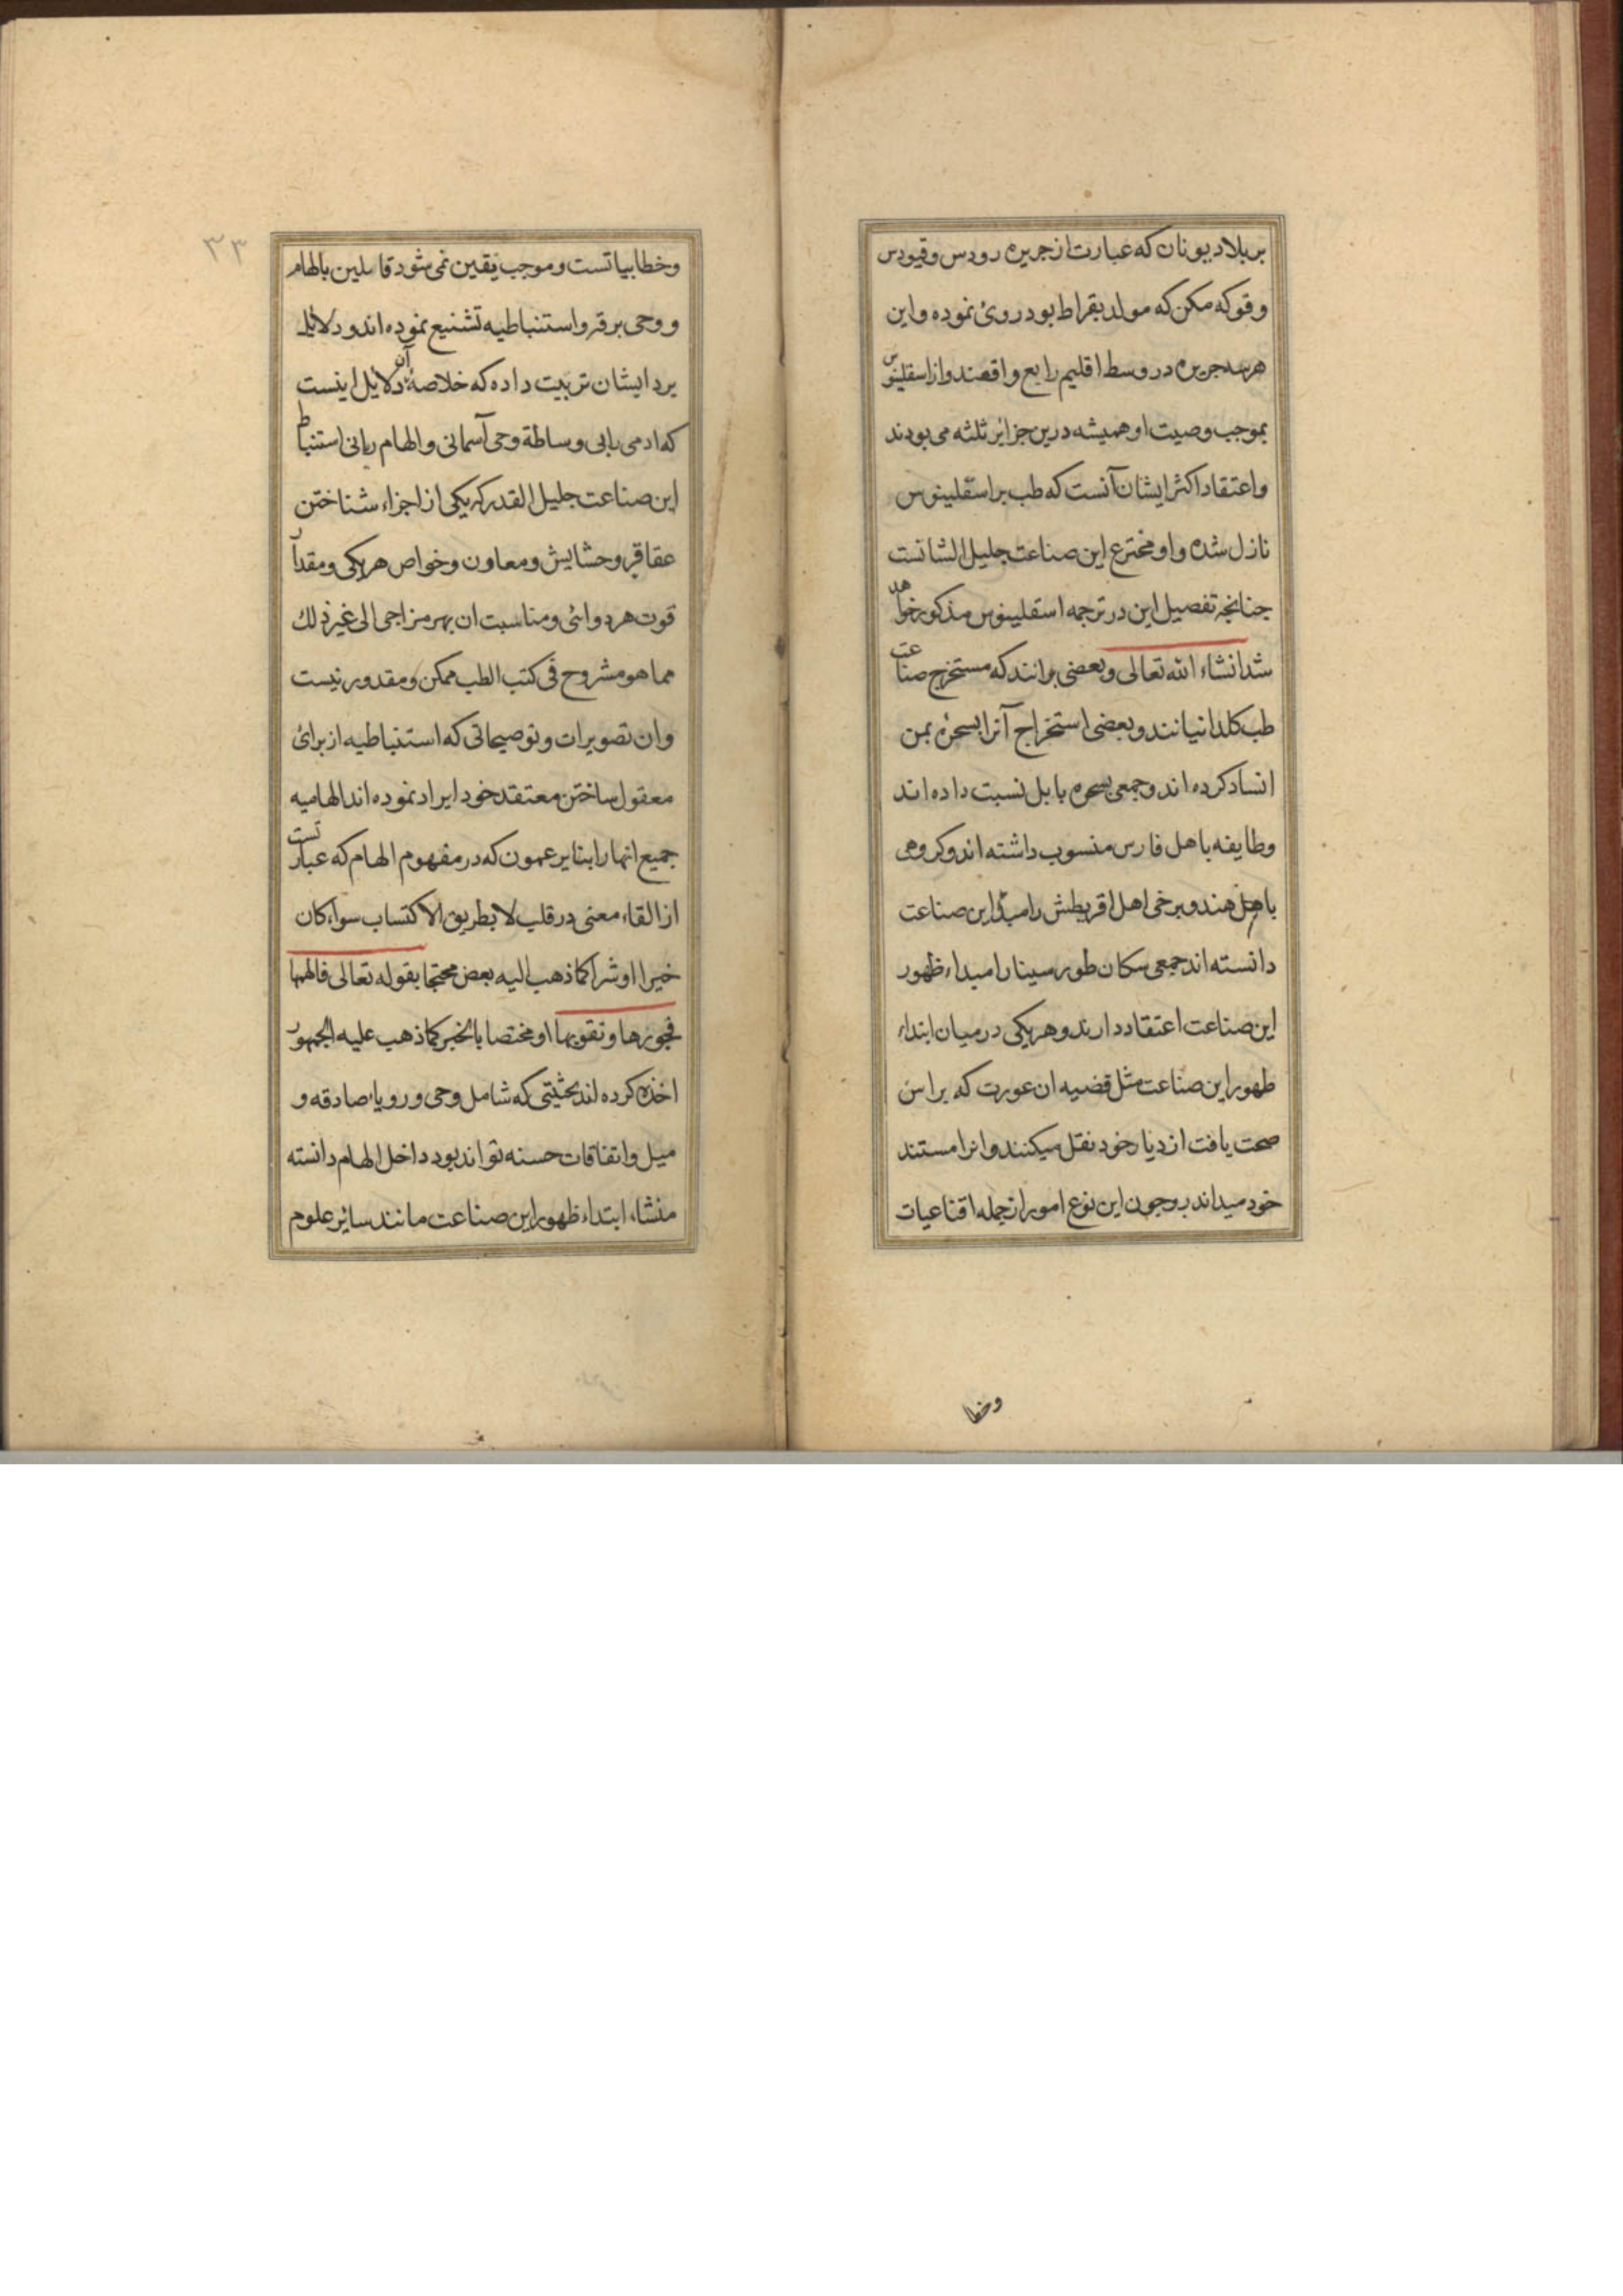 بر بلاد یونان که عبارت از جزیره رودس و قیودس
و قوکه مکن که مولد بقراط بود روی نموده و این
هر سه جزیره در وسط اقلیم رابع واقعند و از اسقلینوس
بموجب وصیت او همیشه درین جزایر ثلثه می بودند
و اعتقاد اکثر ایشان آنست که طب بر اسقلینوس
نازل شده و او مخترع این صناعت جلیل الشانست
جنانجه تفصیل این در ترجمه اسقلینوس مذکور خواهد
شد انشاء الله تعالی و بعضی برانند که مستخرج صناعت
طب کلدانیانند و بعضی استخراج آنرا بسحره یمن
اسناد کرده اند و جمعی بسحره بابل نسبت داده اند
و طایفه باهل فارس منسوب داشته اند و کروهی
باهل هند و برخی اهل اقریطش را مبدأ این صناعت
دانسته اند جمعی سکان طور سینا را مبداء ظهور
این صناعت اعتقاد دارند و هریکی در میان ابتداء
ظهور این صناعت مثل قضیه ان عورت که براسن
صحت یافت از دیار خود نقل میکنند و انرا مستند
خود میدانند و جون این نوع امور از جمله اقناعیات
وخطا
۳۳
و خطابیاتست و موجب یقین نمی شود قایلین بالهام
و وحی بر فرقه استنباطیه تشنیع نموده اند و دلایل
برد ایشان تربیت داده که خلاصهٔ آن دلایل اینست
که ادمی بابی وساطة وحی آسمانی و الهام ربانی استنباط
این صناعت جلیل القدر که یکی از اجزاء شناختن
عقاقیر و حشایش و معاون و خواص هریکی و مقدار
قوت هر دوائی و مناسبت ان بهر مزاجی الی غیر ذلك
مما هو مشروح فی کتب الطب ممکن و مقدور نیست
وان تصویرات و توصیحاتی که استنباطیه از برای
معقول ساختن معتقد خود ایراد نموده اند الهامیه
جمیع انها را بنا بر عمون که در مفهوم الهام که عبارتست
از القاء معنی در قلب لا بطریق الاکتساب سواء کان
خیرا او شرا کما ذهب الیه بعض محتجا بقوله تعالی فالهمها
فجورها و تقویها او مختصا بالخیر کما ذهب علیه الجمهور
اخذه کرده اند بحثیتی که شامل وحی و رویاء صادقه و
میل و اتفاقات حسنه تواند بود داخل الهام دانسته
منشاء ابتداء ظهور این صناعت مانند سائر علوم